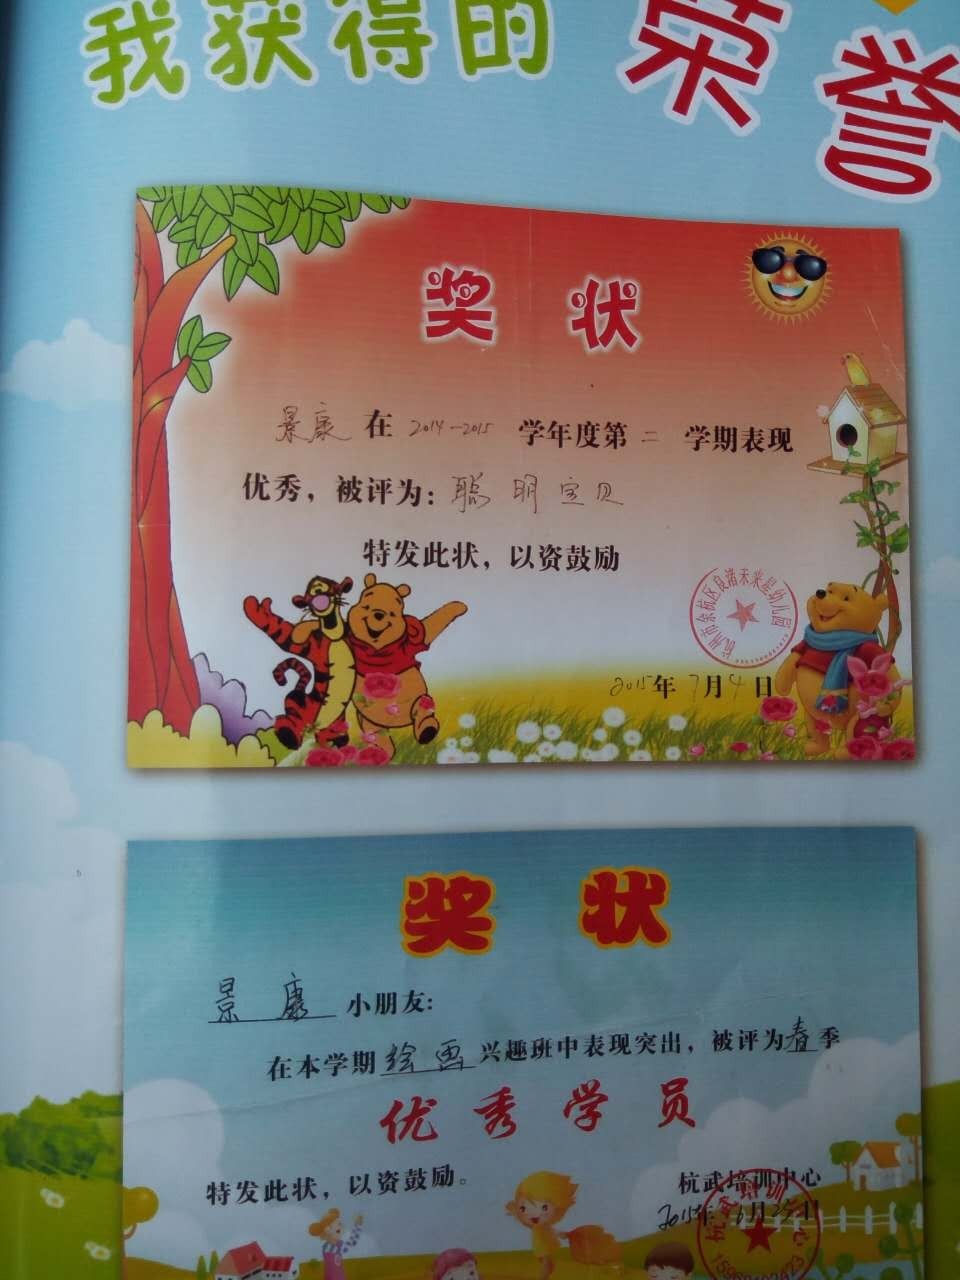 我获得的荣誉
奖状
景康在2014-2015学年度第二学期表现
优秀，被评为：聪明宝贝
特发此状，以资鼓励
杭州市余杭区良渚未来星幼儿园
2015年7月4日
奖状
景康小朋友：
在本学期绘画兴趣班中表现突出，被评为春季
优秀学员
特发此状，以资鼓励。
杭武培训中心
2015年6月25日
杭武培训中心